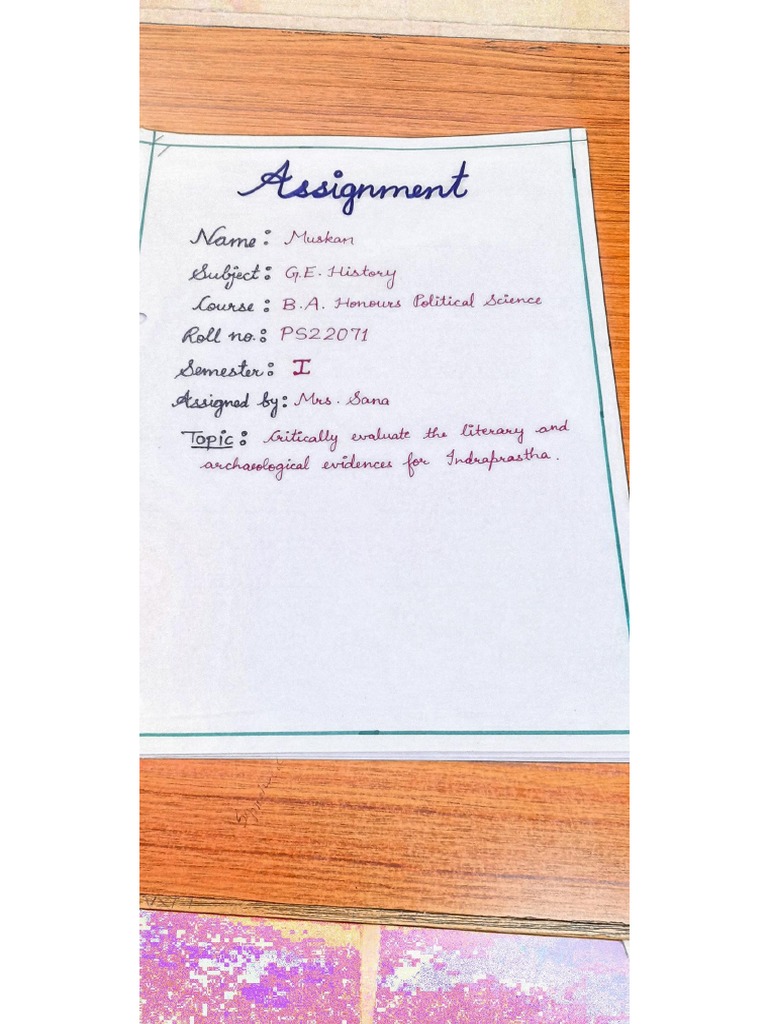 Assignment
Name: Muskan
Subject: G.E. History
Course: B.A. Honours Political Science
Roll no.: PS22071
Semester: I
Assigned by: Mrs. Sana
Topic: Critically evaluate the literary and
archaeological evidences for Indraprastha.